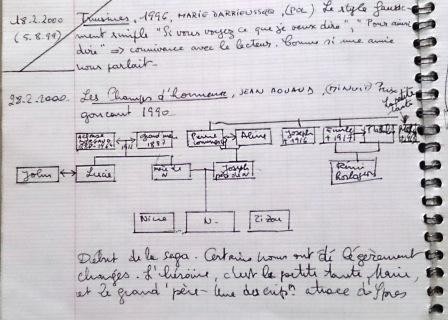 18.2.2000 Truismes, 1996, MARIE DARRIEUSSECQ, (POL) Le style fausse-
(5.8.99) ment simple "Si vous voyez ce que je veux dire", "Pour ainsi
dire" ⇒ connivence avec le lecteur. Comme si une amie
nous parlait.
28.2.2000. Les Champs d'honneur, JEAN ROUAUD, (MINUIT) Prix
goncourt 1990.
la petite tante
1912 grand mère 1887 Pierre Aline Joseph † 1916 Emile † 1917 Mathilde
John Lucie mère de N Joseph père de N Rémi
Nine N. Zizou
Début de la saga. Certains noms ont été légèrement
changés. L'héroïne, c'est la petite tante Marie,
et le grand'père - Une descript° atroce d'Ypres